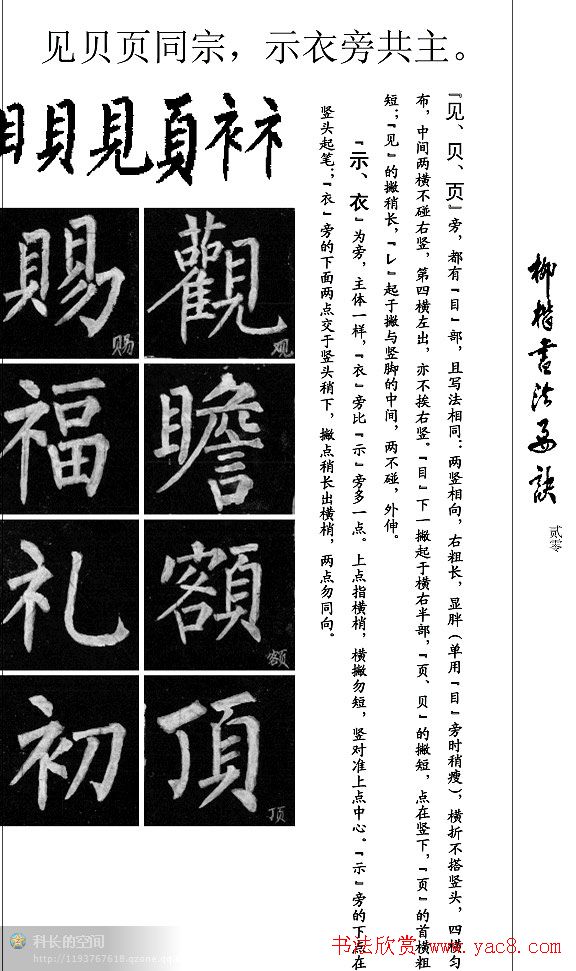 见贝页同宗，示衣旁共主。
柳楷书法要诀
贰零
『见、贝、页』旁，都有『目』部，且写法相同：两竖相向，右粗长，显胖（单用『目』旁时稍瘦），横折不搭竖头，四横匀
布，中间两横不碰右竖，第四横左出，亦不挨右竖。『目』下一撇起于横右半部，『页、贝』的撇短，点在竖下，『页』的首横粗
短；『见』的撇稍长，『㇄』起于撇与竖脚的中间，两不碰，外伸。
『示、衣』为旁，主体一样，『衣』旁比『示』旁多一点。上点指横梢，横撇勿短，竖对准上点中心。『示』旁的下点在
竖头起笔；『衣』旁的下面两点交于竖头稍下，撇点稍长出横梢，两点勿同向。
目貝見頁衤礻
觀
观
瞻
額
额
頂
顶
賜
赐
福
礼
初
科长的空间
http://1193767618.qzone.qq.
书法欣赏 www.yac8.com